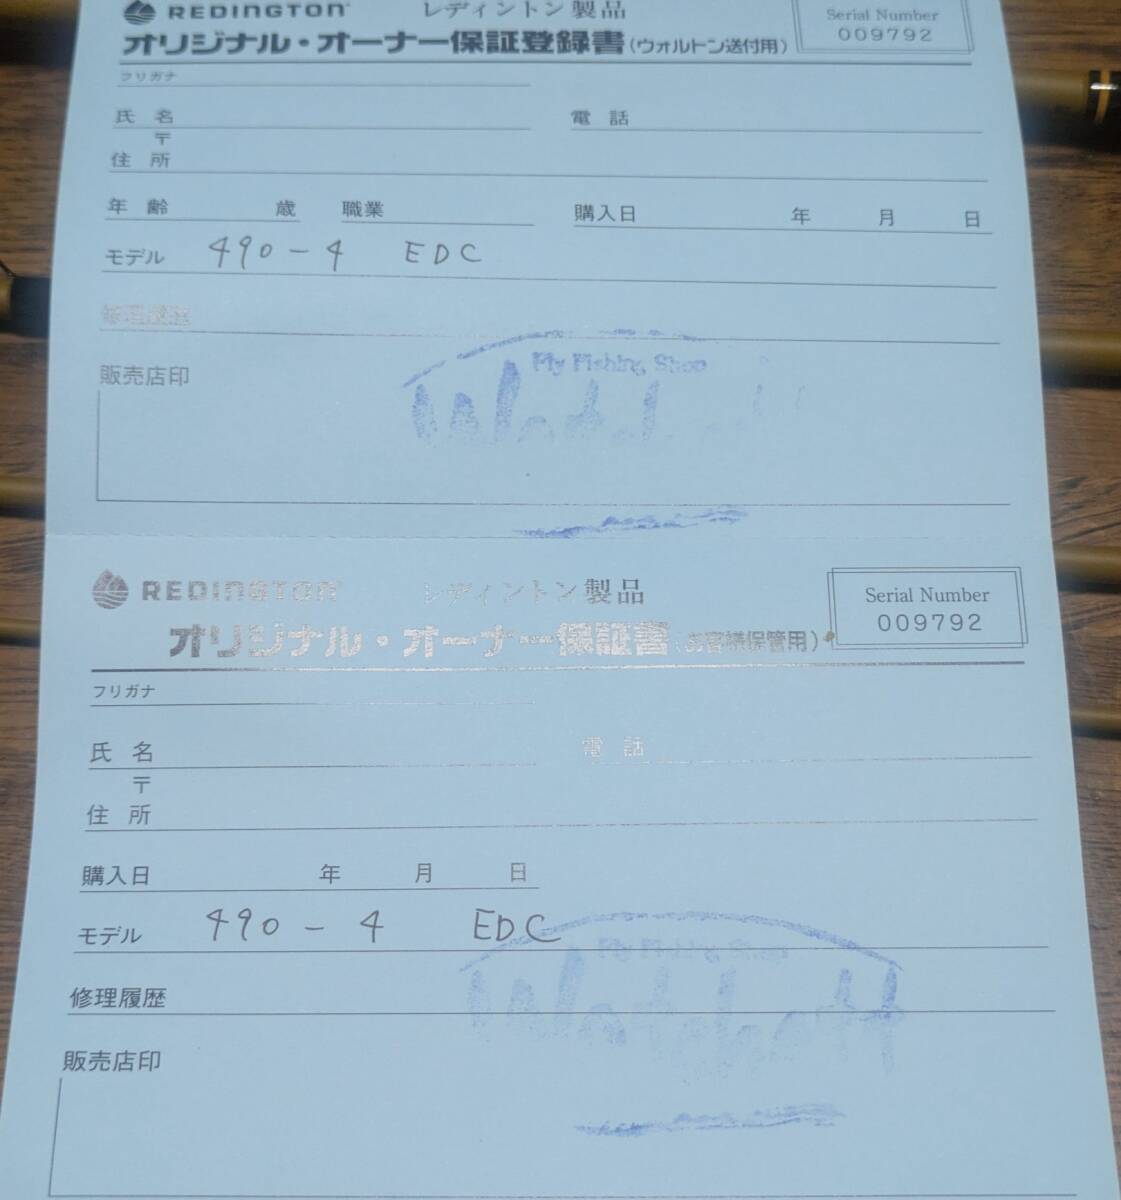 REDINGTON レディントン製品
Serial Number
009792
オリジナル・オーナー保証登録書(ウォルトン送付用)
フリガナ
氏 名 電 話
〒
住 所
年 齢 歳 職業 購入日 年 月 日
モデル 490-4 EDC
修理履歴
販売店印
Fly Fishing Shop
REDINGTON レディントン製品
Serial Number
009792
オリジナル・オーナー保証書(お客様保管用)
フリガナ
氏 名 電 話
〒
住 所
購入日 年 月 日
モデル 490-4 EDC
Fly Fishing Shop
修理履歴
販売店印